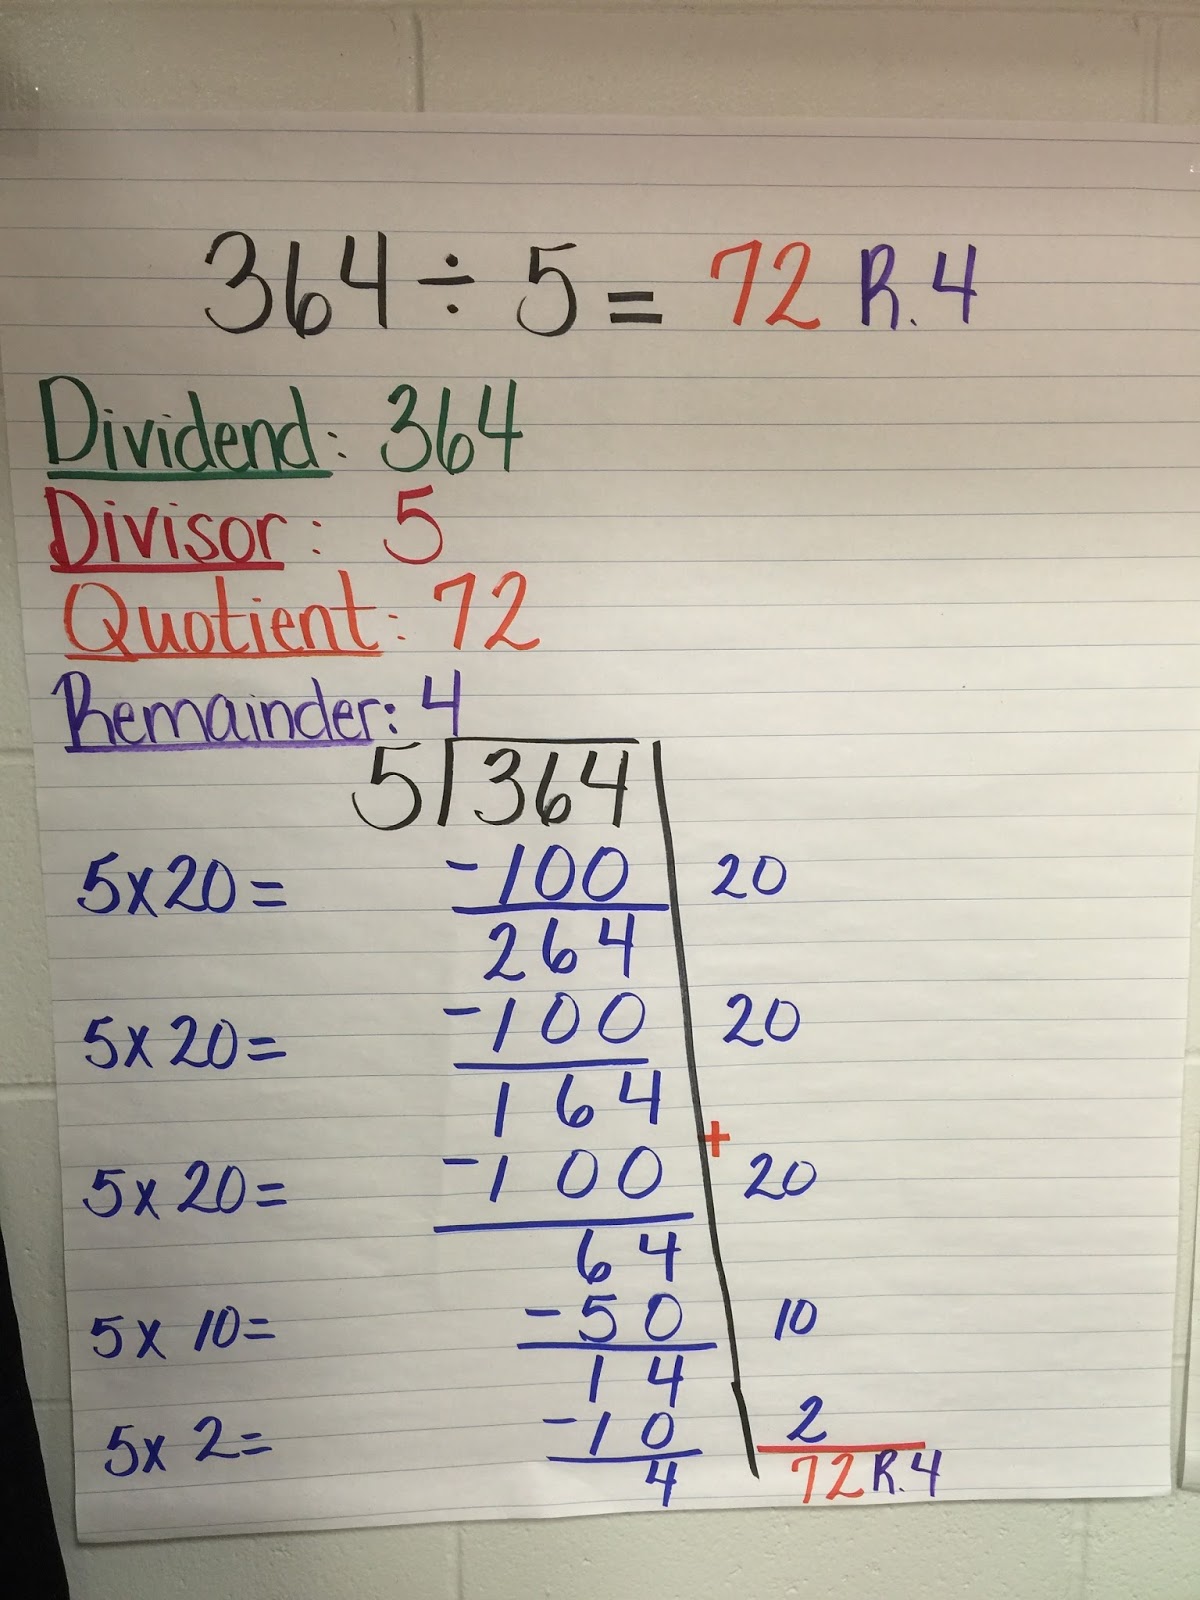 364 ÷ 5 = 72 R. 4
Dividend: 364
Divisor: 5
Quotient: 72
Remainder: 4
5 364
5x20= -100 20
264
5x20= -100 20
164
+
5x20= -100 20
64
5x10= -50 10
14
5x2= -10 2
4 72 R.4